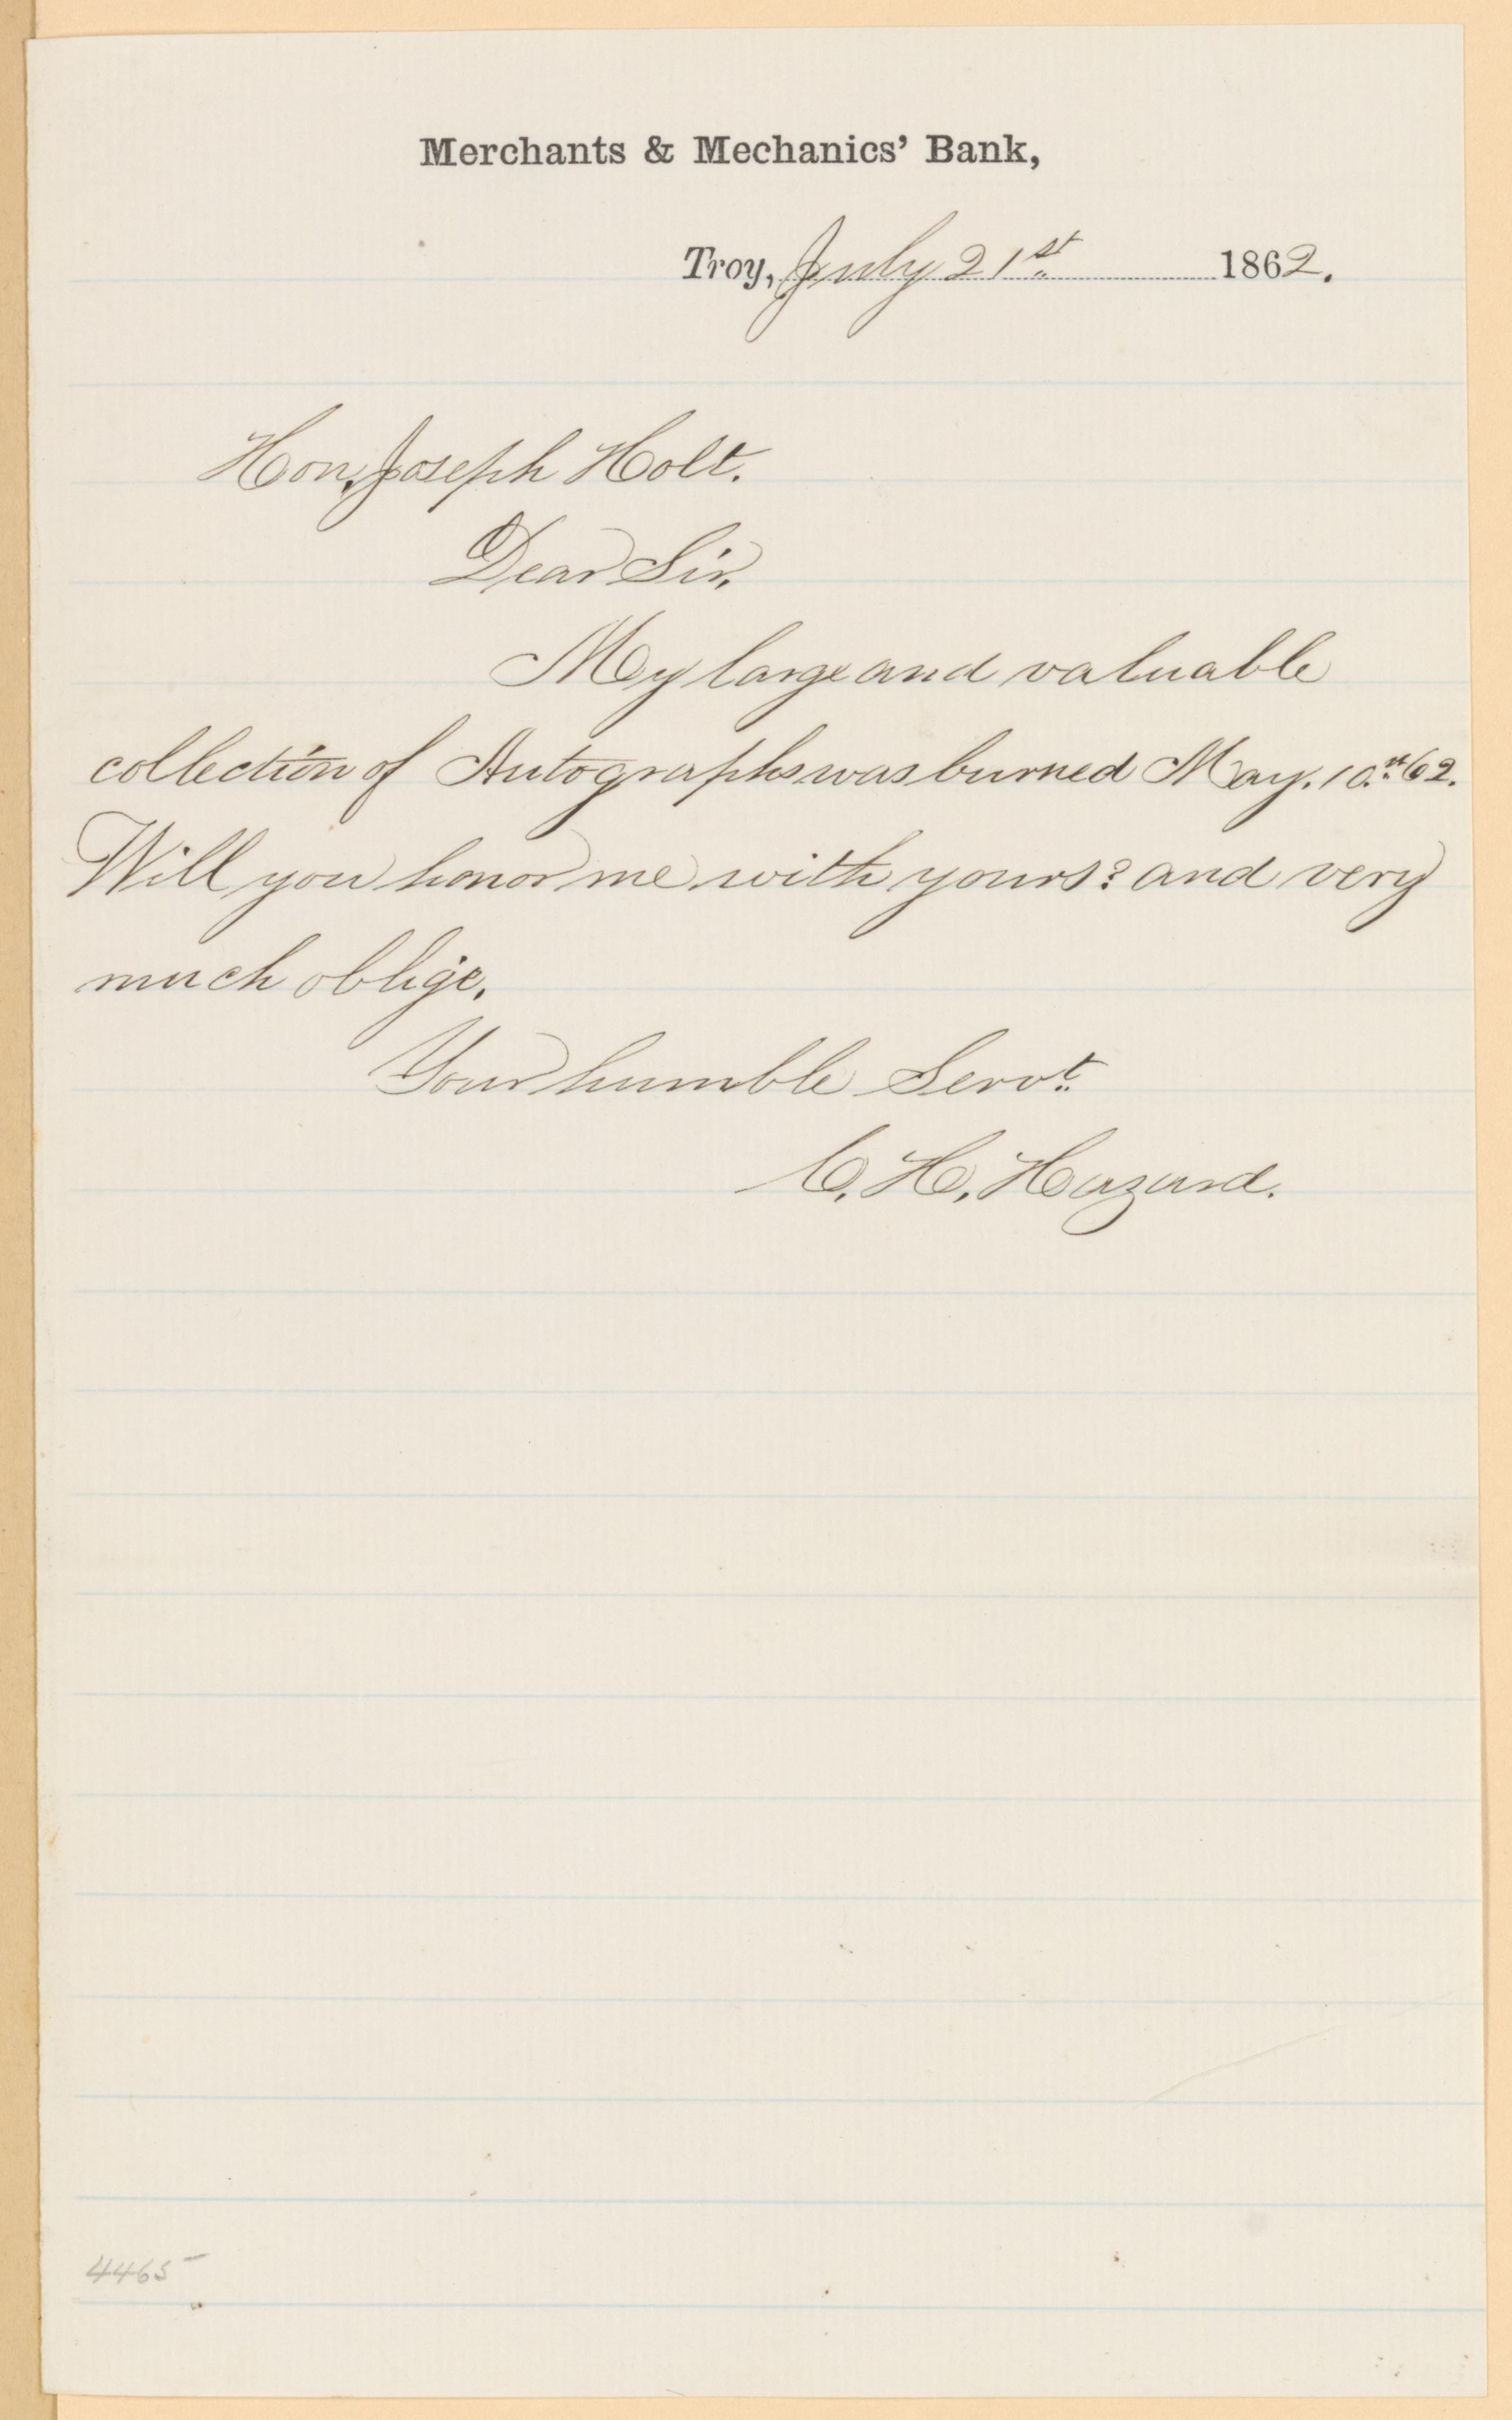 Merchants & Mechanics' Bank,
Troy, July 21st 1862.
Hon. Joseph Holt.
Dear Sir,
My large and valuable
collection of Autographs was burned May. 10th/62.
Will you honor me with yours? and very
much oblige,
Your humble Servt.
C. H. Hazard.
4465